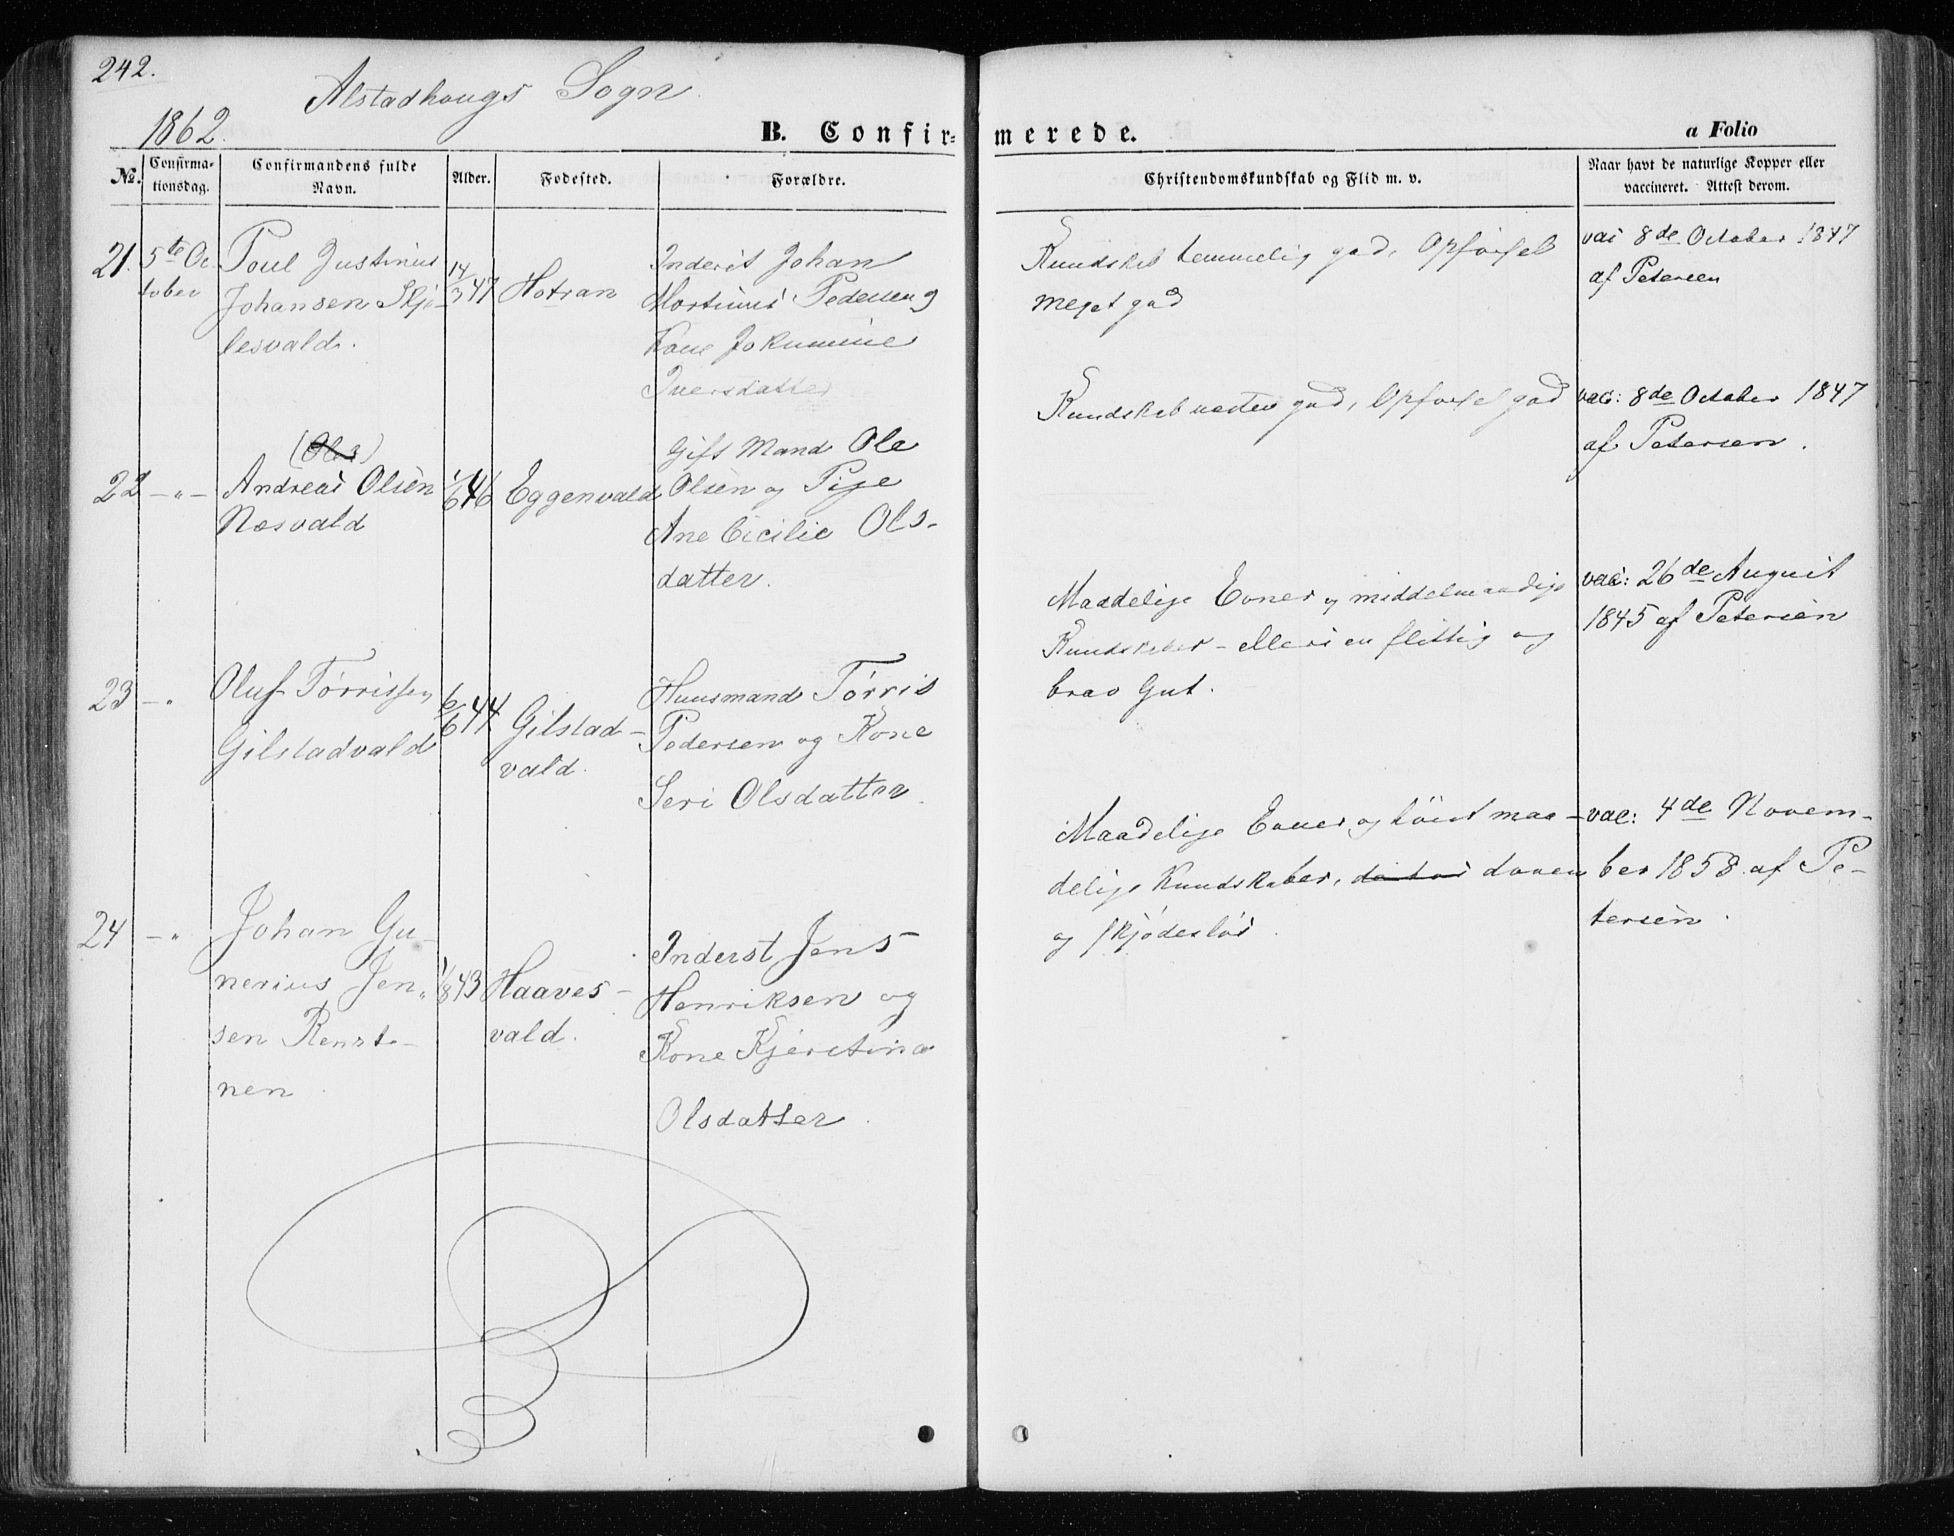 242.
Alstadhougs Sogn
1862.
B. Confirmerede.
a Folio
No.
Confirmationsdag.
Confirmandens fulde Navn.
Alder.
Fødested.
Forældre.
Christendomskundskab og Flid m. v.
Naar havt de naturlige Kopper eller
vaccineret. Attest derom.
21. 5te Oc
tober
Poul Justinus
Johansen Skjø
lesvald.
14/3 47
Hotran
Inderst Johan
Mortinus Pedersen og
Kone Jokumine
Iversdatter
Kundskab temmelig god, Opførsel
meget god
vac 8de October 1847
af Petersen
22 -"-
(Ole)
Andreas Olsen
Næsvald
1/6 46
Eggenvald
Gift Mand Ole
Olsen og Pige
Ane Cicilie Ols-
datter.
Kundskab næsten god, Opførsel god
vac: 8de October 1847
af Petersen.
23 -"
Oluf Tørrissen
Gilstadvald
6/6 44
Gilstad-
vald.
Huusmand Tørris
Pedersen og Kone
Seri Olsdatter
Maadelige Evner og middelmaadige
Kundskaber - ellers en flittig og
brav Gut.
vac: 26de August
1845 af Petersen
24 -"
Johan Gu-
nerius Jen-
sen Renst-
nen
1/8 43
Haaves-
vald.
Inderst Jens
Henriksen og
Kone Kjerstina
Olsdatter.
Maadelige Evner og høist maa-
delige Kundskaber, doven
og skjødesløs.
vac: 4de Novem-
ber 1858 af Pe-
tersen.